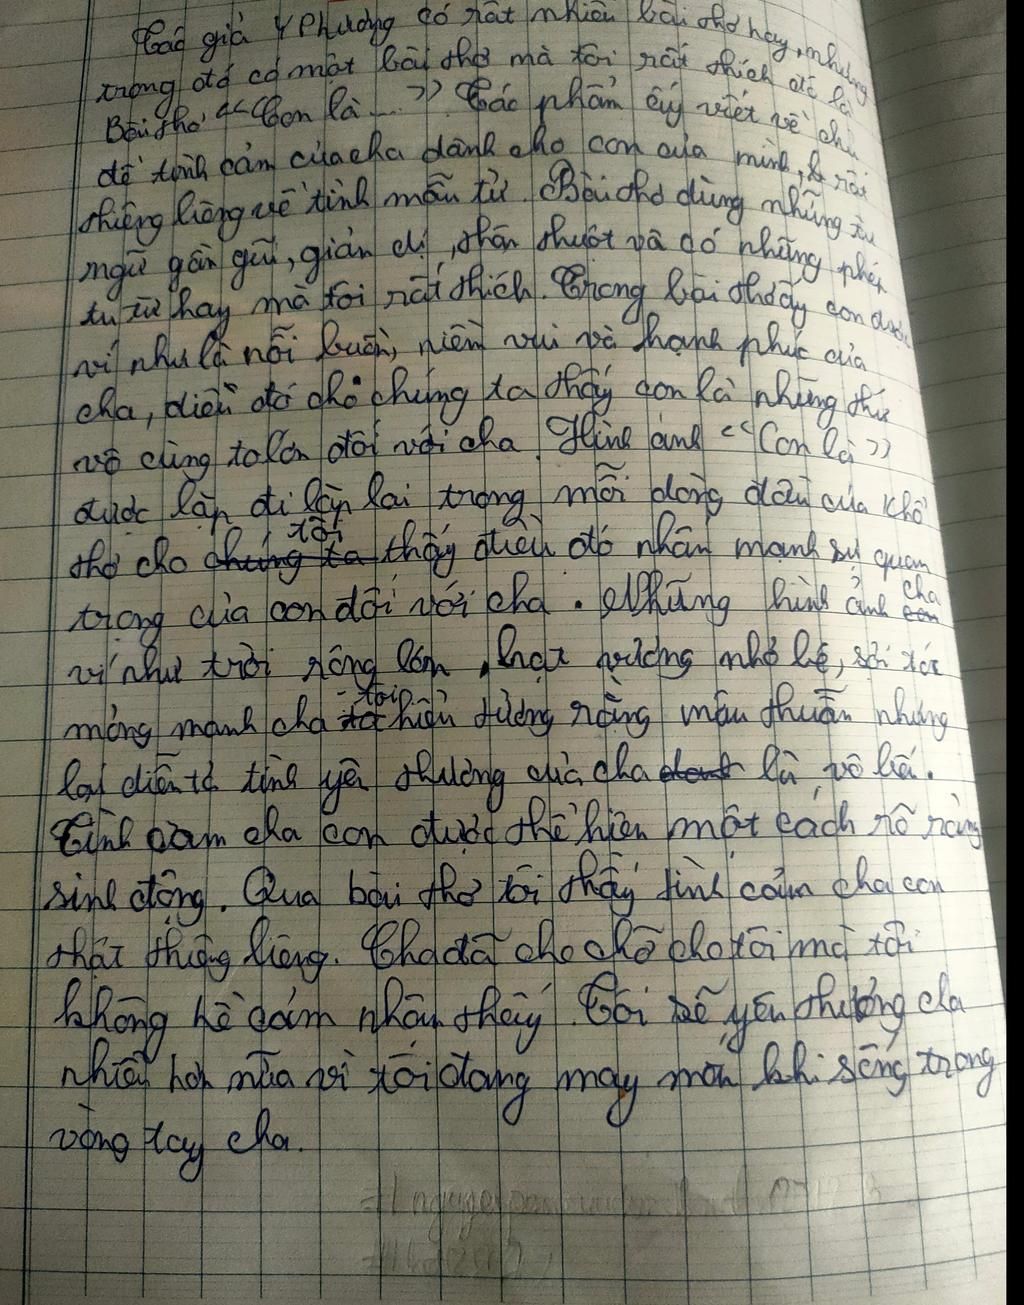 Tác giả Y Phương có rất nhiều bài thơ hay, nhưng
trong đó có một bài thơ mà tôi rất thích đó là
Bài thơ "Con là...". Tác phẩm ấy viết về chủ
đề tình cảm của cha dành cho con của mình, rất
thiêng liêng về tình mẫu tử. Bài thơ dùng những từ
ngữ gần gũi, giản dị, thân thuột và có những phép
tu từ hay mà tôi rất thích. Trong bài thơ ấy con được
ví như là nỗi buồn, niềm vui và hạnh phúc của
cha, điều đó cho chúng ta thấy con là những thứ
vô cùng to lớn đối với cha. Hình ảnh "Con là"
được lặp đi lặp lại trong mỗi dòng đầu của khổ
thơ cho tôi thấy điều đó nhấn mạnh sự quan
trọng của con đối với cha. Những hình ảnh cha
ví như trời rộng lớn, hạt vường nhỏ bé, sợi tóc
mỏng manh cha tôi hiểu tưởng rằng mâu thuẫn nhưng
lại diễn tả tình yêu thương của cha là vô bến.
Tình cảm cha con được thể hiện một cách rõ ràng
sinh động. Qua bài thơ tôi thấy tình cảm cha con
thật thiêng liêng. Cha đã che chở cho tôi mà tôi
không hề cảm nhận thấy. Tôi sẽ yêu thương cha
nhiều hơn nữa vì tôi đang may mắn khi sống trong
vòng tay cha.